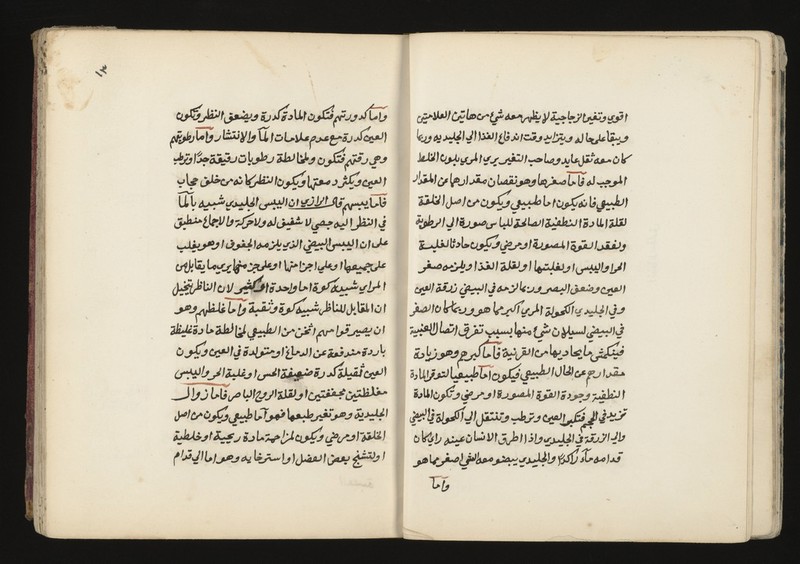 اقوي وتغير الزجاجية لا يظهر معه شئ من هاتين العلامتين
ويبقا على حاله ويتزايد وقت اندفاع الغذا الي الجليديه وربما
كان معه ثقل عايد وصاحب التغير يري المري بلون الخلط
الموجب له فاما صغرها وهو نقصان مقدارها عن المقدار
الطبيعي فانه يكون اما طبيعي ويكون من اصل الخلقة
لقلة المادة النطفية الصالحة للباس صورة الي الرطوبة
ولفقد القوة المصورة او مرضي ويكون حادثا لغلبة
الحر او اليبس او لغلبتها او لقلة الغذا ويلزمه صغر
العين وضعف البصر وربما لزمه في البيضي زرقة العين
وفي الجليدي الكحولة المري اكبر مما هو وربما كان الصغر
في البيضي لسيلان شئ منها بسبب تفرق اتصال العنبية
فينكشي ما يحاذيها من القرنية فاما كبرها وهو زيادة
مقدارهم عن الحال الطبيعي فيكون اما طبيعيا لتوفر المادة
النطفية وجودة القوة المصورة او مرضي وتكون المادة
تزيد في الحجم فتكبر العين وترطب وتنتقل الي الكحولة في البيضي
والي الزرقة في الجليدي واذا اطرق الانسان عينه راي كان
قدامه ماء راكدا والجليدي يبضو معه المري اصغر مما هو
واما
١٣
واما كدورتهم فتكون المادة كدرة ويضعف النظر وتكون
العين كدرة مع عدم علامات الماء والانتشار واما رطوبتهم
وهي رقتهم فتكون لمخالطة رطوبات رقيقة جدا وترطب
العين ويكثر دمعتها ويكون النظر كانه من خلف حجاب
فاما يبسهم قال الرازي ان اليبس الجليدي شبيه بالماء
في النظر اليه جصي لا شفيق له ولا حركة والاجماع منطبق
علي ان اليبس البيضي الذي يلزمه الجفوف وهو يغلب
علي جميعها او علي اجزا منها او علي جز منها يري ما يقابل من
المراي شبيه كوة اما واحدة او كثير لان الناظر يتخيل
ان المقابل للناظر شبيه كوة وثقبة واما غلظهم وهو
ان يصير قوامهم اثخن من الطبيعي لمخالطة مادة غليظة
باردة مندفعة عن الدماغ او متولدة في العين ويكون
العين ثقيلة كدرة ضعيفة الحس او غلبة الحر واليبس
مغلظتين مجففتين او لقلة الروح الباصر فاما زوال
الجليدية وهو تغير طبعها فهو اما طبيعي ويكون من اصل
الخلقة او مرضي ويكون لمزاحمة مادة ريحية او خلطية
او لتشنج بعض العضل او استرخايه وهو اما الي قدام